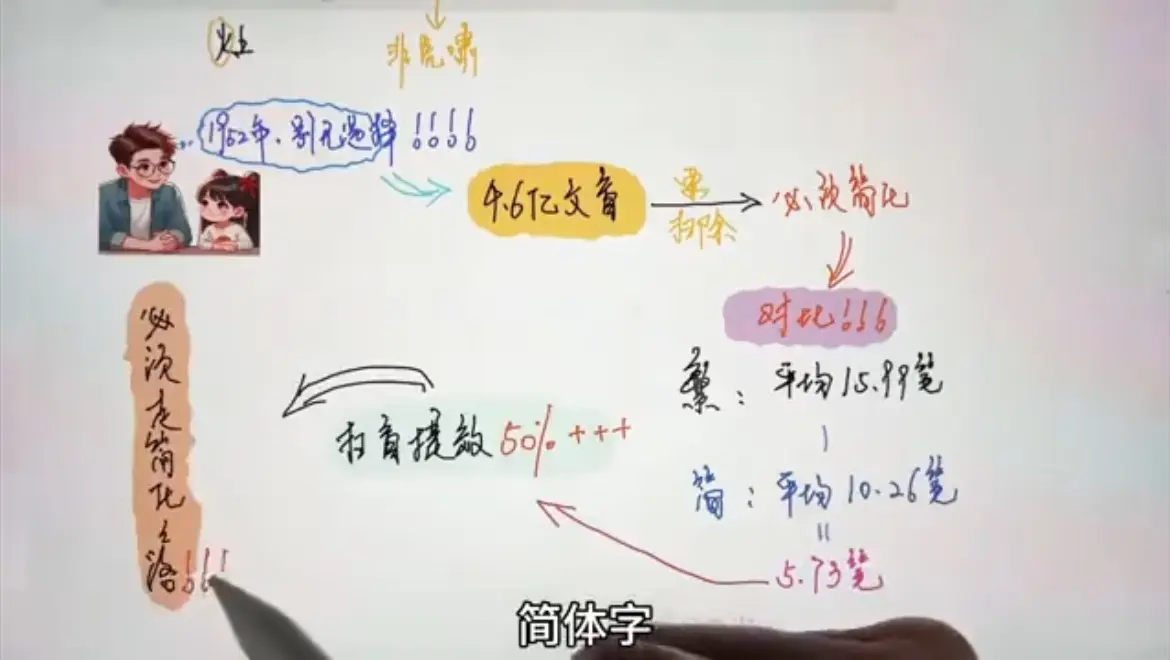 灶
1952年、别无选择！！！！
4.6亿文盲
要
扫除
必须简化
对比！！！
繁：平均15.99笔
简：平均10.26笔
=
5.73笔
扫盲提效50%+++
必须走简化之路！！！
简体字